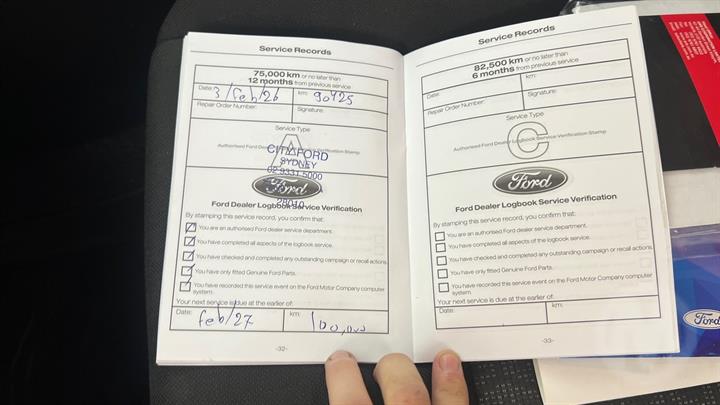 Service Records
75,000 km or no later than
12 months from previous service
Date: 3/Feb/26 km: 90425
Repair Order Number: Signature:
Service Type
A
Authorised Ford Dealer Logbook Service Verification Stamp
CITY FORD
SYDNEY
02 9331 5000
Ford
28010
Ford Dealer Logbook Service Verification
By stamping this service record, you confirm that:
You are an authorised Ford dealer service department.
You have completed all aspects of the logbook service.
You have checked and completed any outstanding campaign or recall actions.
You have only fitted Genuine Ford Parts.
You have recorded this service event on the Ford Motor Company computer
system.
Your next service is due at the earlier of:
Date: Feb/27 km: 100,000
-32-
Service Records
82,500 km or no later than
6 months from previous service
Date: km:
Repair Order Number: Signature:
Service Type
C
Authorised Ford Dealer Logbook Service Verification Stamp
Ford
Ford Dealer Logbook Service Verification
By stamping this service record, you confirm that:
You are an authorised Ford dealer service department.
You have completed all aspects of the logbook service.
You have checked and completed any outstanding campaign or recall actions.
You have only fitted Genuine Ford Parts.
You have recorded this service event on the Ford Motor Company computer
system.
Your next service is due at the earlier of:
Date: km:
-33-
Ford